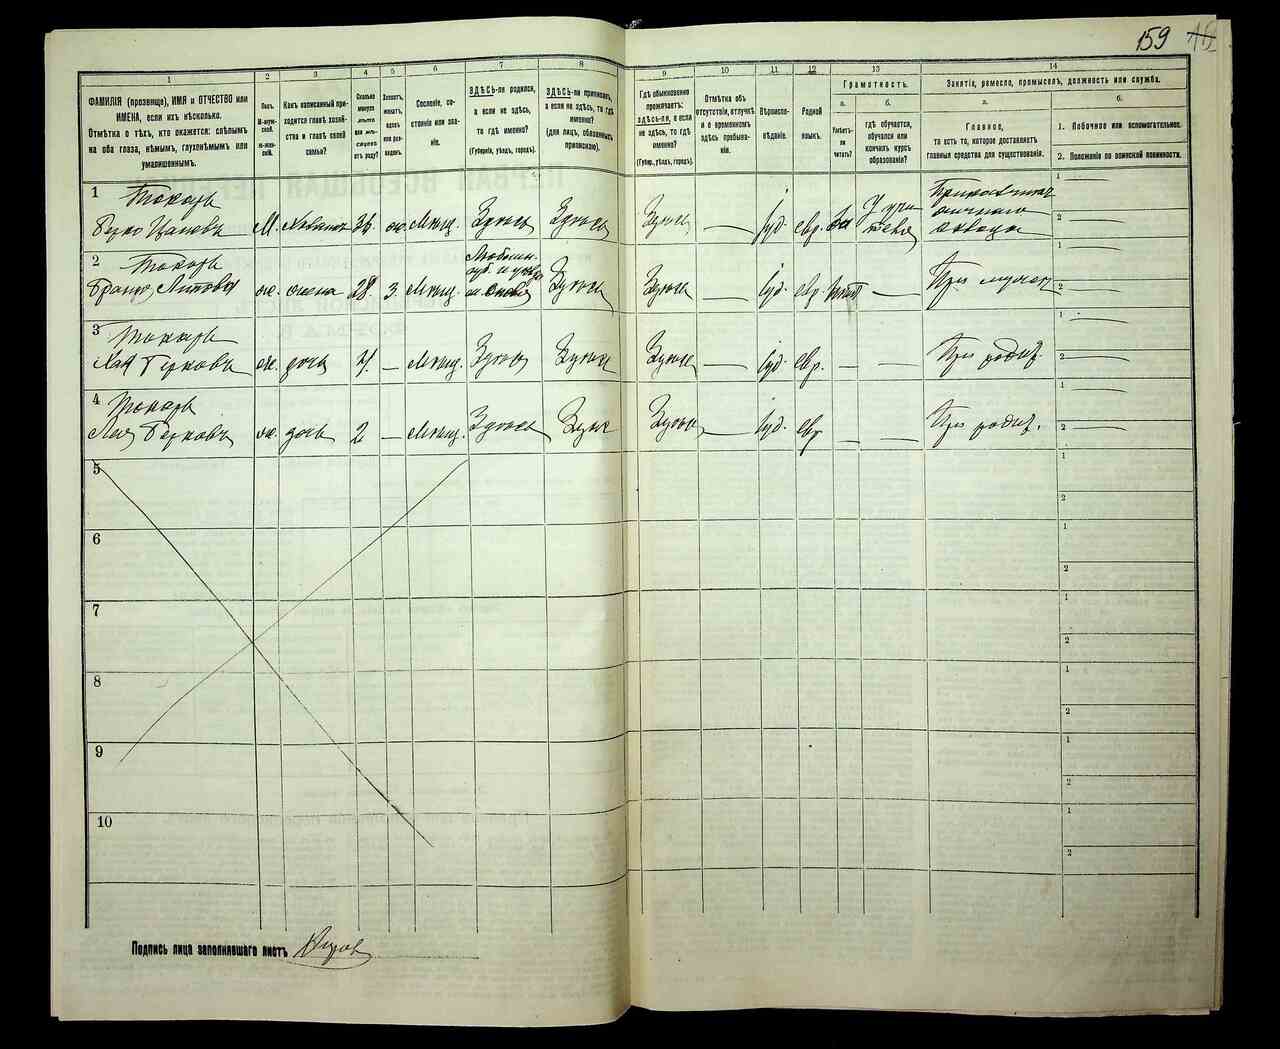 159
1
2
3
4
5
6
7
8
9
10
11
12
13
14
ФАМИЛІЯ (прозвище), ИМЯ и ОТЧЕСТВО или
ИМЕНА, если ихъ нѣсколько.
Отмѣтка о тѣхъ, кто окажется: слѣпымъ
на оба глаза, нѣмымъ, глухонѣмымъ или
умалишеннымъ.
Полъ.
М-мужской.
Ж-женскій.
Какъ записанный при-
ходится главѣ хозяй-
ства и главѣ своей
семьи?
Сколько
минуло
лѣтъ
или мѣ-
сяцевъ
отъ роду?
Холостъ,
женатъ,
вдовъ
или раз-
веденъ.
Сословіе, со-
стояніе или зва-
ніе.
ЗДѢСЬ-ли родился,
а если не здѣсь,
то гдѣ именно?
(Губернія, уѣздъ, городъ).
ЗДѢСЬ-ли приписанъ,
а если не здѣсь, то гдѣ
именно?
(для лицъ, обязанныхъ
припискою).
Гдѣ обыкновенно
проживаетъ:
здѣсь-ли, а если
не здѣсь, то гдѣ
именно?
(Губер., уѣздъ, городъ).
Отмѣтка объ
отсутствіи, отлучкѣ
и о временномъ
здѣсь пребыва-
ніи.
Вѣроиспо-
вѣданіе.
Родной
языкъ.
Грамотность.
а.
Умѣетъ-
ли
читать?
б.
гдѣ обучается,
обучался или
кончилъ курсъ
образованія?
Занятіе, ремесло, промыселъ, должность или служба.
а.
Главное,
то есть то, которое доставляетъ
главныя средства для существованія.
б.
1. Побочное или вспомогательное.
2. Положеніе по воинской повинности.
1
Токарь
Берко Цалевъ
М. Хозяинъ 26. ж. Мѣщ. Здѣсь Здѣсь Здѣсь — Іуд. евр. да У учителя
2
Токарь
ж. жена 28. З. Мѣщ. Здѣсь Здѣсь — Іуд. евр. нѣтъ — При мужѣ
3
Токарь
Хая Беркова ж. дочь 4. — Мѣщ. Здѣсь Здѣсь Здѣсь — Іуд. евр. — — При родит.
4
Токарь
Лея Берковъ ж. дочь 2 — Мѣщ. Здѣсь Здѣсь Здѣсь — Іуд. евр — — При родит.
5
6
7
8
9
10
Подпись лица заполнявшаго листъ